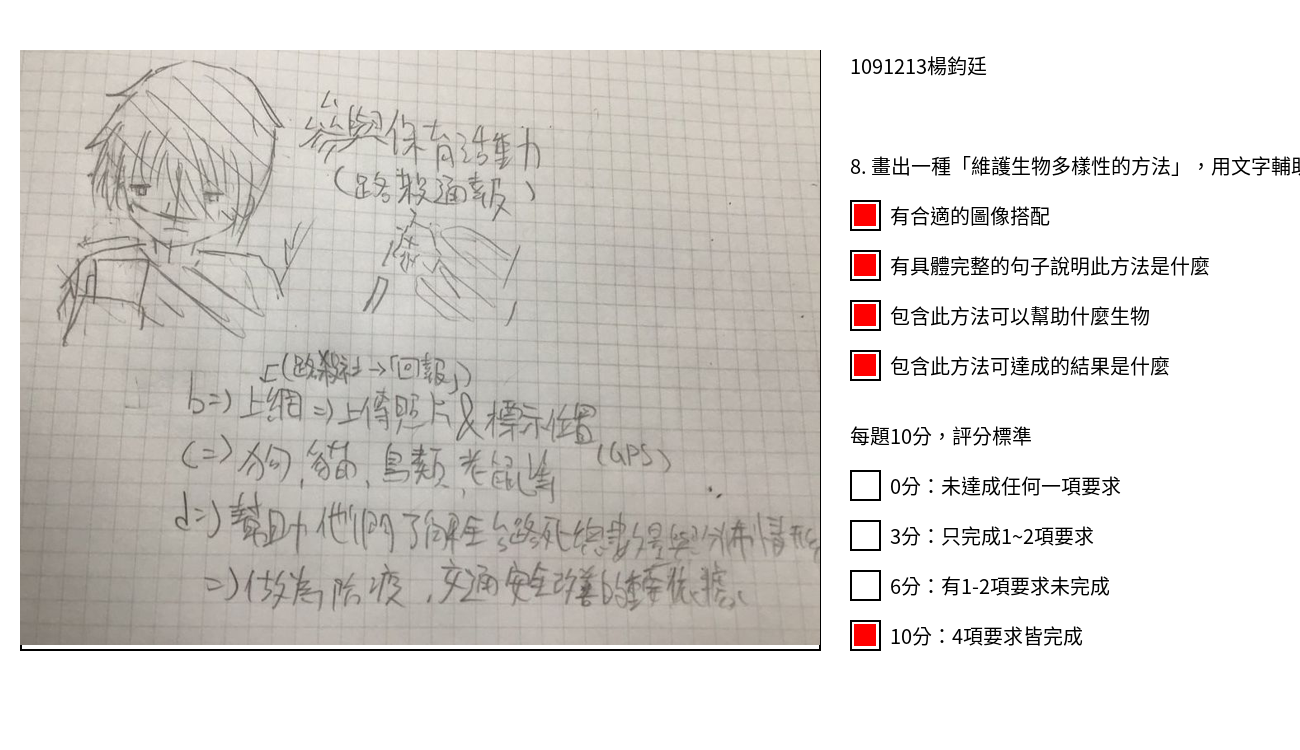 參與保育活動
(路殺通報)
(路殺社→「回報」)
b=)上網=)上傳照片&標示位置
(GPS)
c=)狗,貓,鳥類,老鼠等
d=)幫助他們了解全台路死總數量與分佈情形
=)做為防疫,交通安全改善的重要依據。
1091213楊鈞廷
8. 畫出一種「維護生物多樣性的方法」，用文字輔助
有合適的圖像搭配
有具體完整的句子說明此方法是什麼
包含此方法可以幫助什麼生物
包含此方法可達成的結果是什麼
每題10分，評分標準
0分：未達成任何一項要求
3分：只完成1~2項要求
6分：有1-2項要求未完成
10分：4項要求皆完成